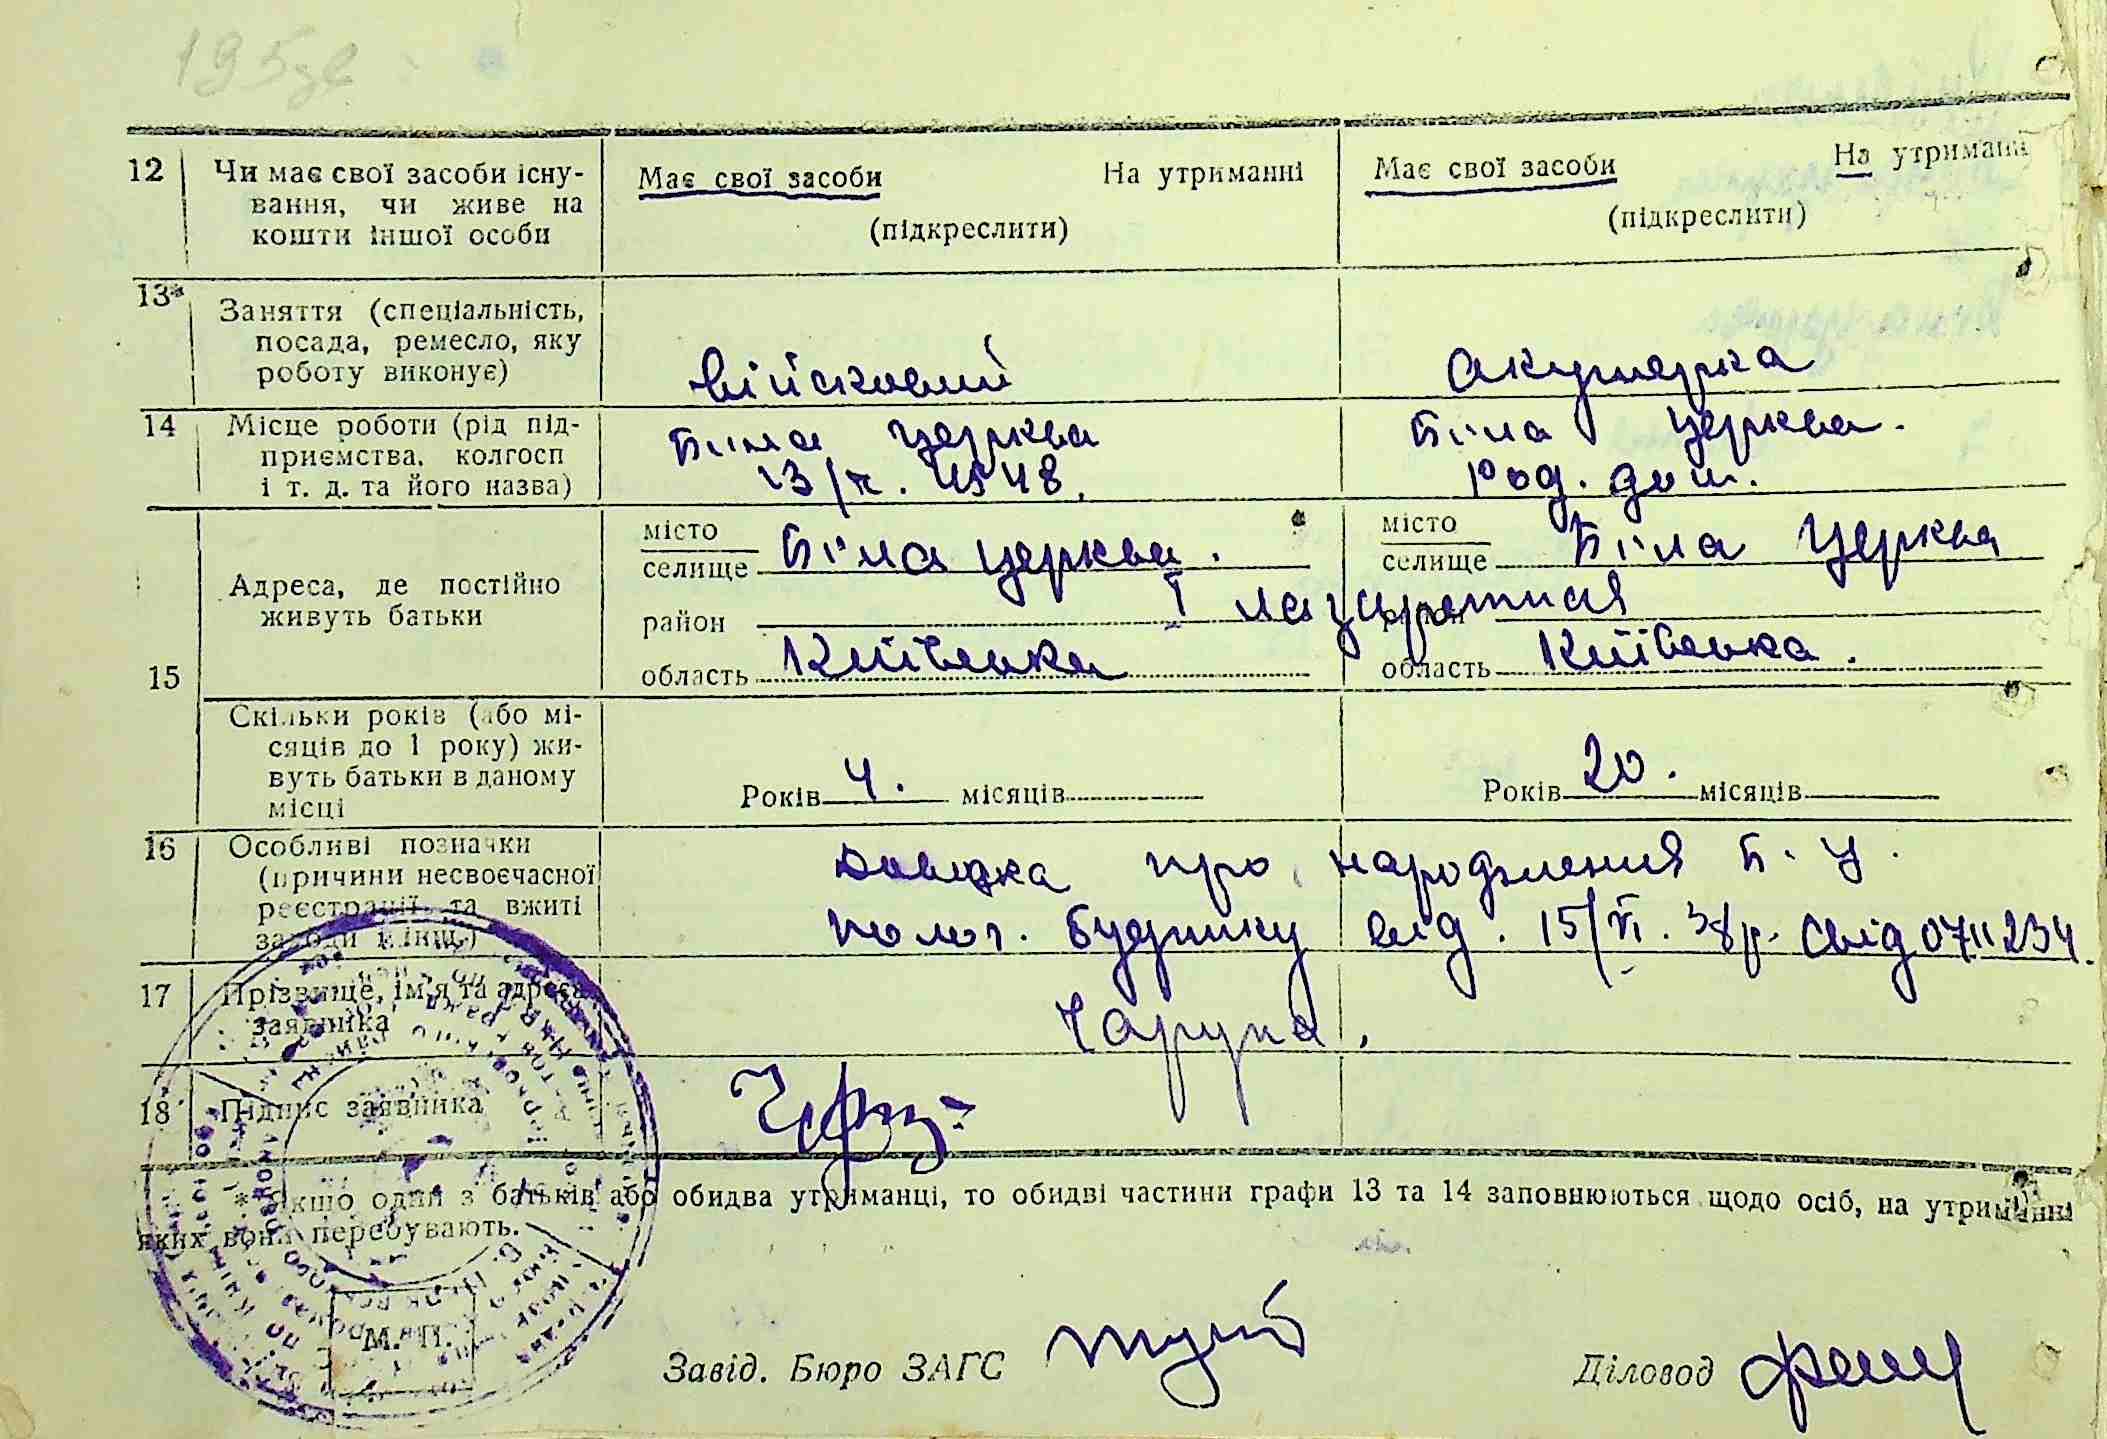 195зв
12 Чи має свої засоби існу- Має свої засоби На утриманні Має свої засоби На утриманні
вання, чи живе на (підкреслити) (підкреслити)
кошти іншої особи
13* Заняття (спеціальність,
посада, ремесло, яку
роботу виконує) військовий акушерка
14 Місце роботи (рід під- Біла церква Біла церква.
приємства, колгосп В/ч. 4548. Род. дом.
і т. д. та його назва)
15 Адреса, де постійно місто Біла церква. місто Біла Церква
живуть батьки селище селище
район І лазаретная район
область Київська область Київська.
Скільки років (або мі-
сяців до 1 року) жи-
вуть батьки в даному
місці Років 4. місяців Років 20. місяців
16 Особливі позначки Довідка про народження Б. Ц.
(причини несвоєчасної
реєстрації та вжиті полог. будинку від. 15/ 38р. свід 0711234.
заходи й інш.)
17 Прізвище, ім'я та адреса
заявника
18 Підпис заявника
* Якщо один з батьків або обидва утриманці, то обидві частини графи 13 та 14 заповнюються щодо осіб, на утриманні
яких вони перебувають.
М. П.
Завід. Бюро ЗАГС Діловод